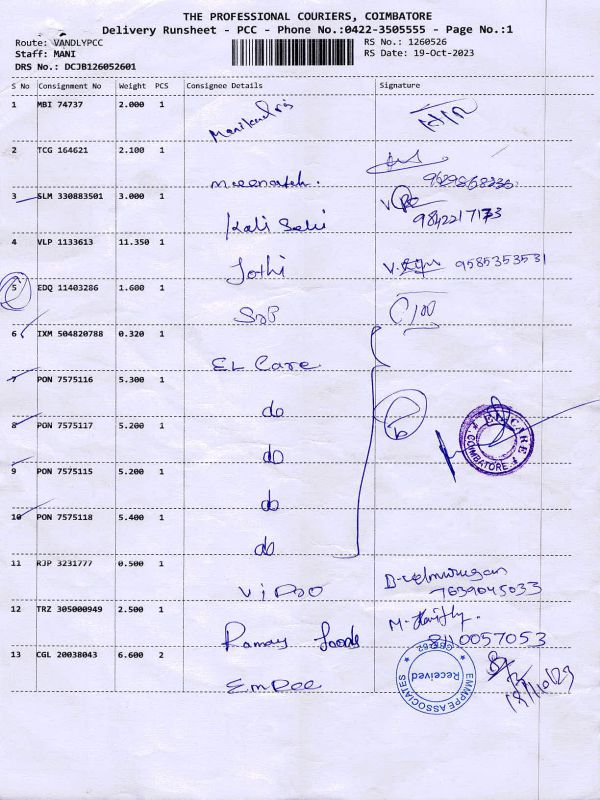 THE PROFESSIONAL COURIERS, COIMBATORE
Delivery Runsheet - PCC - Phone No.:0422-3505555 - Page No.:1
Route: VANDLYPCC RS No.: 1260526
Staff: MANI RS Date: 19-Oct-2023
DRS No.: DCJB126052601
S No Consignment No Weight PCS Consignee Details Signature
1 MBI 74737 2.000 1
2 TCG 164621 2.100 1
3 SLM 330883501 3.000 1
9842217173
Kali Selvi
4 VLP 1133613 11.350 1
Jothi 9585353531
5 EDQ 11403286 1.600 1
6 IXM 504820788 0.320 1
EL Care
7 PON 7575116 5.300 1
do
8 PON 7575117 5.200 1
do
EN CARE COIMBATORE
9 PON 7575115 5.200 1
do
10 PON 7575118 5.400 1
do
11 RJP 3231777 0.500 1
7639045033
12 TRZ 305000949 2.500 1
Ramay Foods 8110057053
13 CGL 20038043 6.600 2
Empee
EMMPPE ASSOCIATES CBE-62 Received